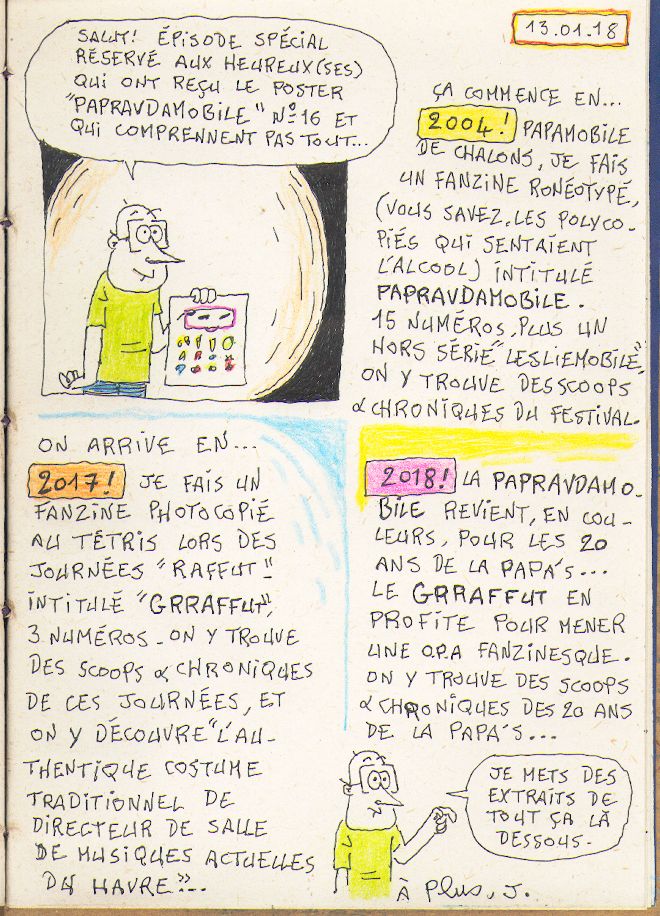 13.01.18
SALUT! ÉPISODE SPÉCIAL
RÉSERVÉ AUX HEUREUX(SES)
QUI ONT REÇU LE POSTER
"PAPRAVDAMOBILE" N°16 ET
QUI COMPRENNENT PAS TOUT...
ÇA COMMENCE EN...
2004! PAPAMOBILE
DE CHALONS, JE FAIS
UN FANZINE RONÉOTYPÉ,
(VOUS SAVEZ, LES POLYCO-
PIÉS QUI SENTAIENT
L'ALCOOL) INTITULÉ
PAPRAVDAMOBILE.
15 NUMÉROS, PLUS UN
HORS SÉRIE "LESLIEMOBILE",
ON Y TROUVE DES SCOOPS
& CHRONIQUES DU FESTIVAL.
ON ARRIVE EN...
2017! JE FAIS UN
FANZINE PHOTOCOPIÉ
AU TÉTRIS LORS DES
JOURNÉES "RAFFUT"
INTITULÉ "GRRAFFUT",
3 NUMÉROS - ON Y TROUVE
DES SCOOPS & CHRONIQUES
DE CES JOURNÉES, ET
ON Y DÉCOUVRE "L'AU-
THENTIQUE COSTUME
TRADITIONNEL DE
DIRECTEUR DE SALLE
DE MUSIQUES ACTUELLES
DU HAVRE"...
2018! LA PAPRAVDAMO-
BILE REVIENT, EN COU-
LEURS, POUR LES 20
ANS DE LA PAPA'S...
LE GRRAFFUT EN
PROFITE POUR MENER
UNE O.P.A FANZINESQUE.
ON Y TROUVE DES SCOOPS
& CHRONIQUES DES 20 ANS
DE LA PAPA'S...
JE METS DES
EXTRAITS DE
TOUT ÇA LÀ
DESSOUS.
À PLUS, J.